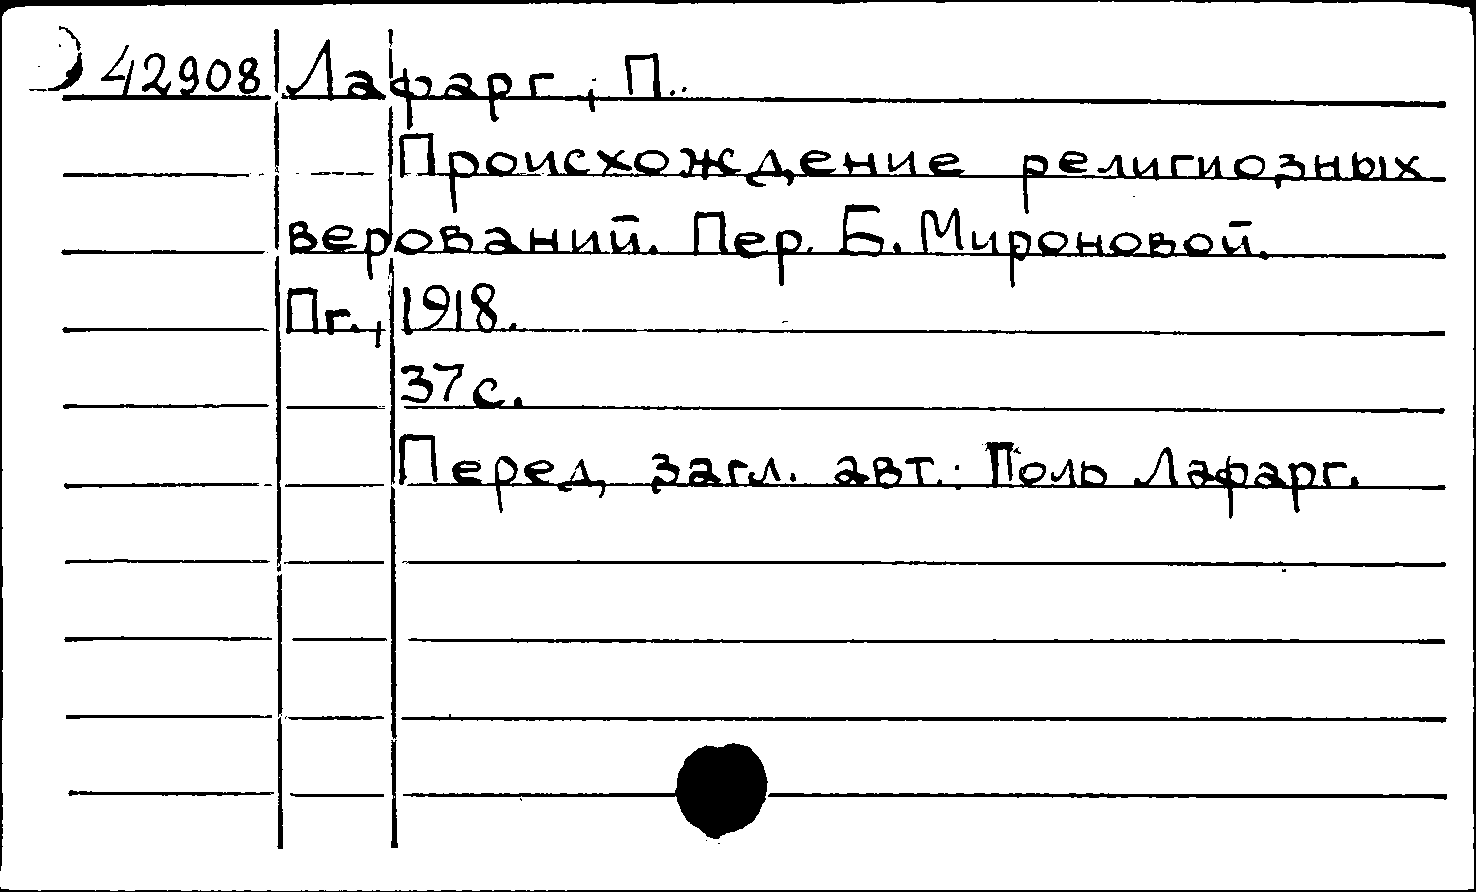 42908 Лафарг, П.
Происхождение религиозных
верований. Пер. Б. Мироновой.
Пг., 1918.
37 с.
Перед загл. авт.: Поль Лафарг.